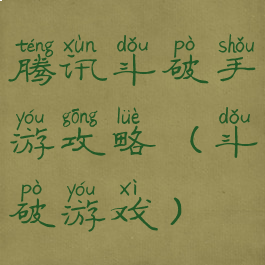 téng xùn dǒu pò shǒu
腾讯斗破手
yóu gōng lüè dǒu
游攻略（斗
pò yóu xì
破游戏）